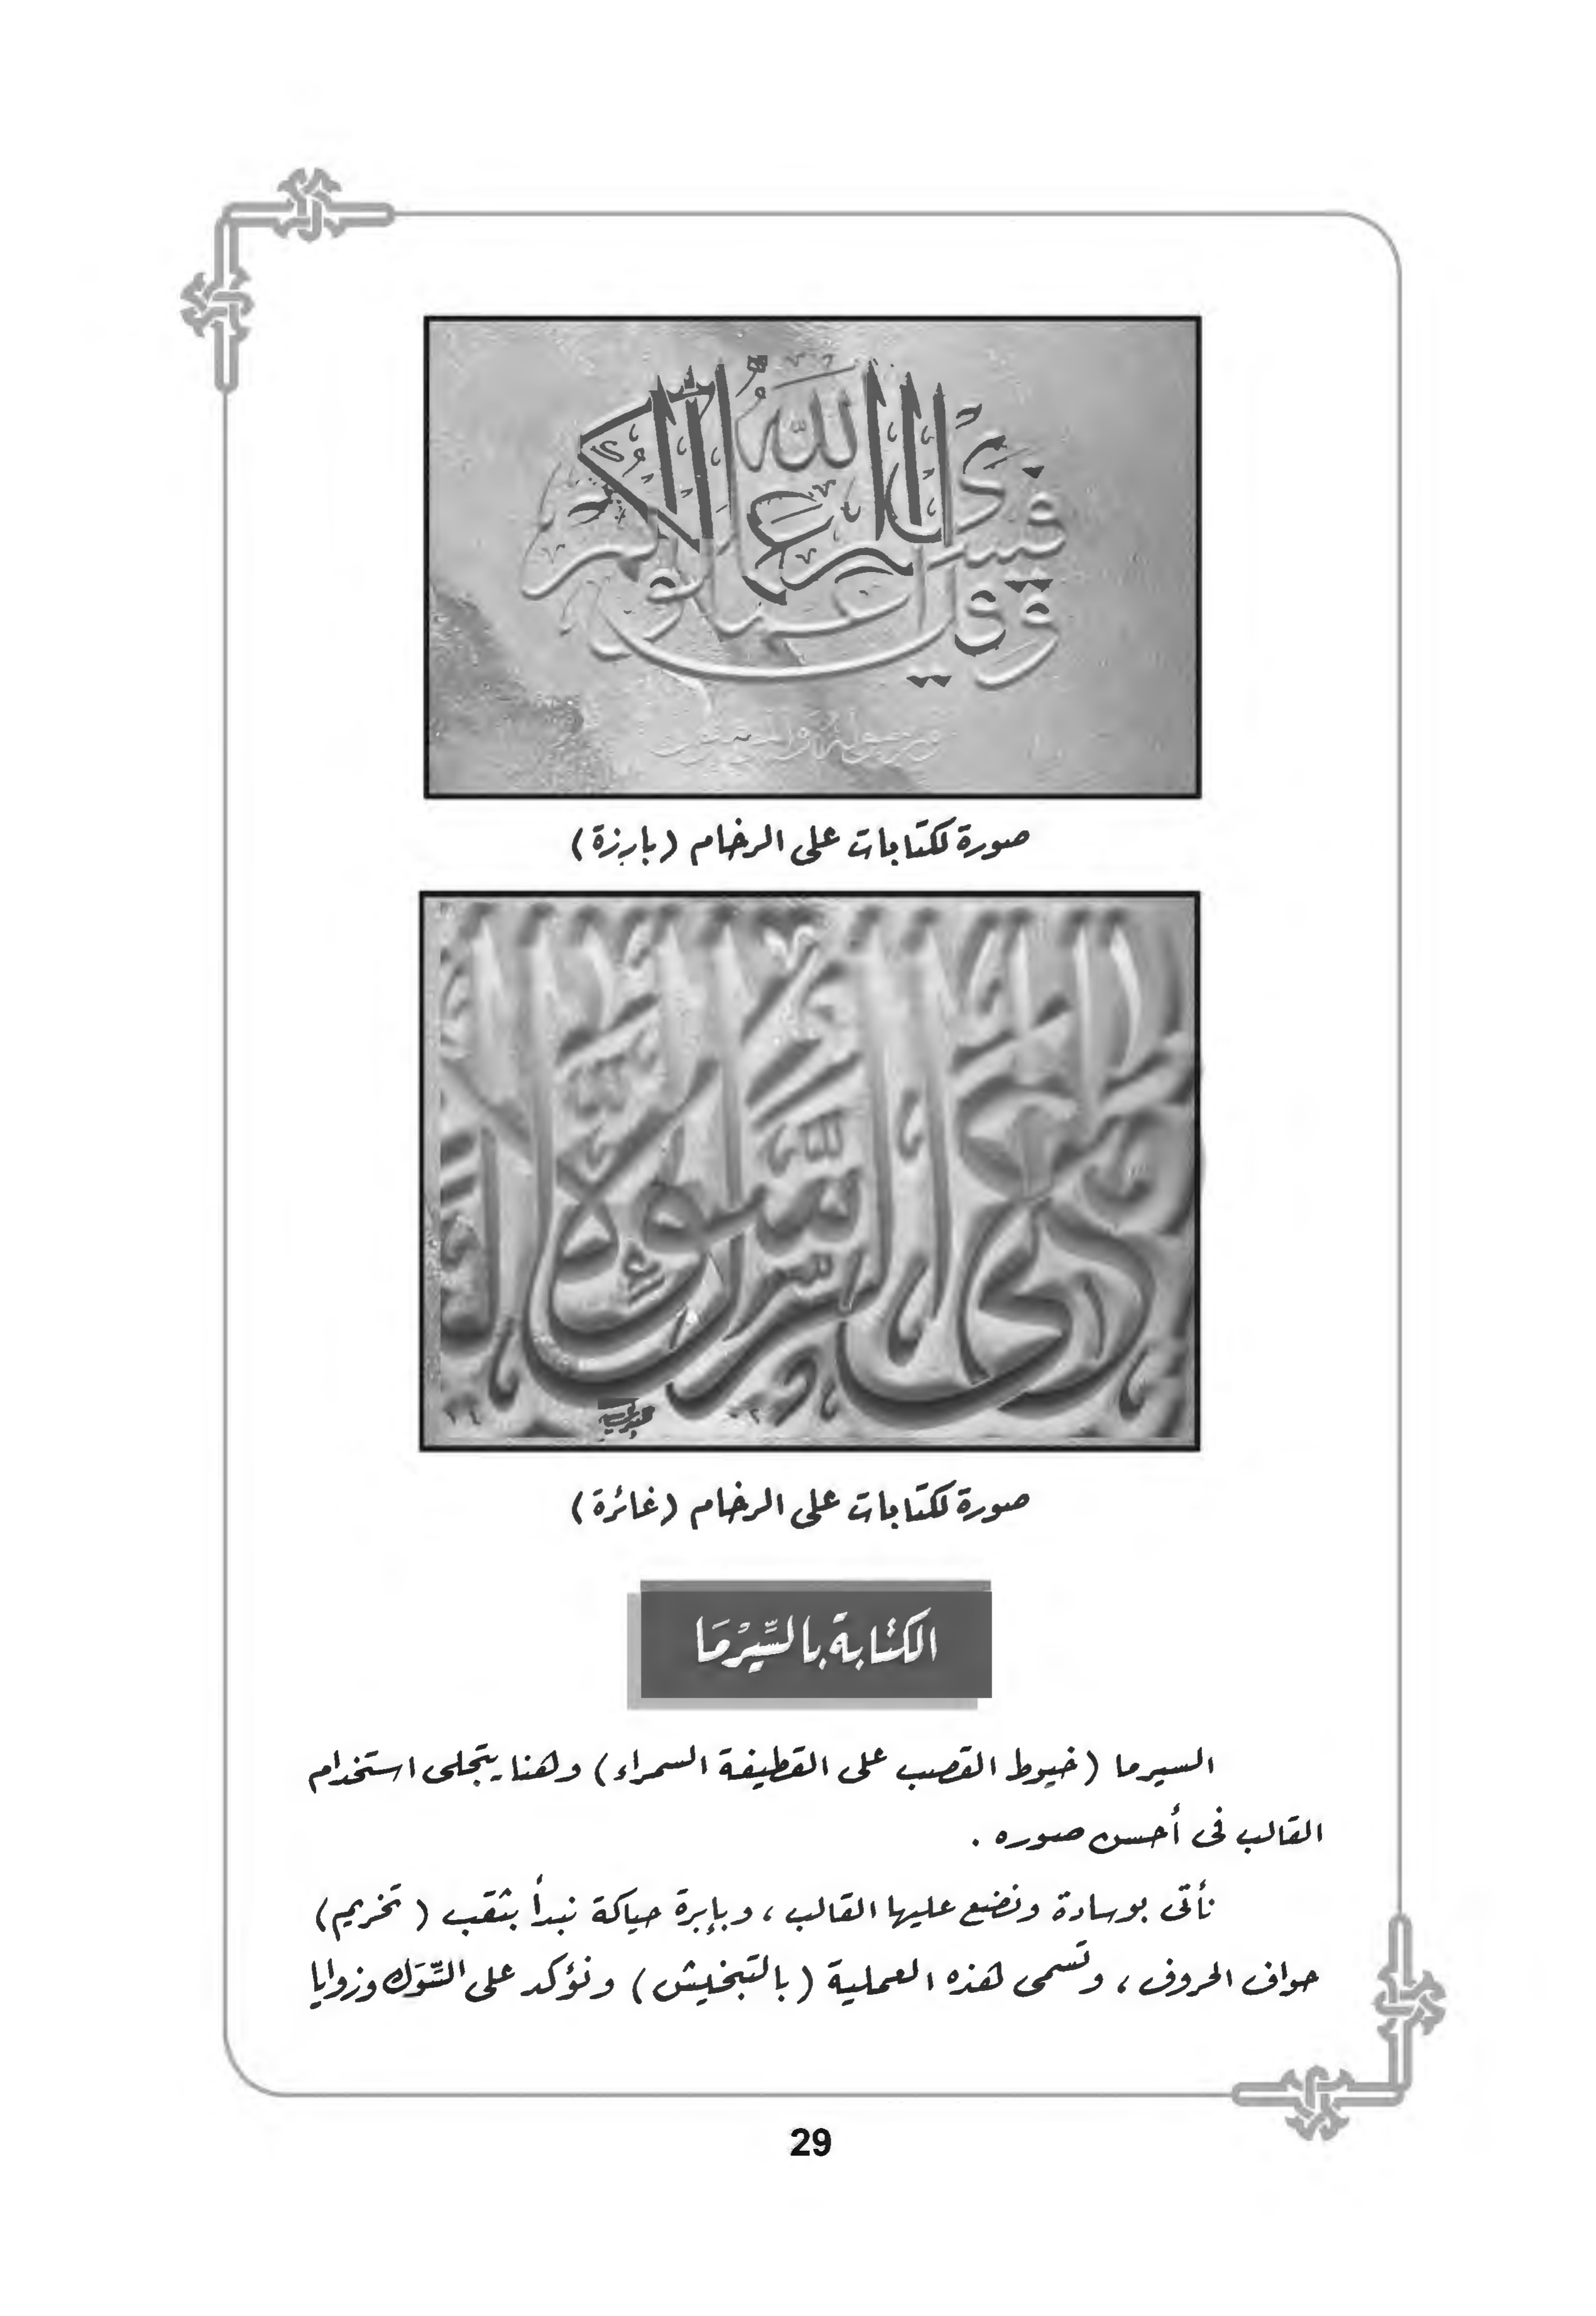 وقل اعملوا فسيرى الله عملكم
ورسوله والمؤمنون
صورة لكتابات على الرخام (بارزة)
صورة لكتابات على الرخام (غائرة)
الكتابة بالسِّيْرْمَا
السيرما (خيوط القصب على القطيفة السمراء) وهنا يتجلى استخدام
القالب فى أحسن صوره .
نأتى بوسادة ونضع عليها القالب ، وبإبرة حياكة نبدأ بثقب ( تخريم)
حواف الحروف ، وتسمى هذه العملية (بالتبخيش) ونؤكد على السِّوَك وزوايا
29